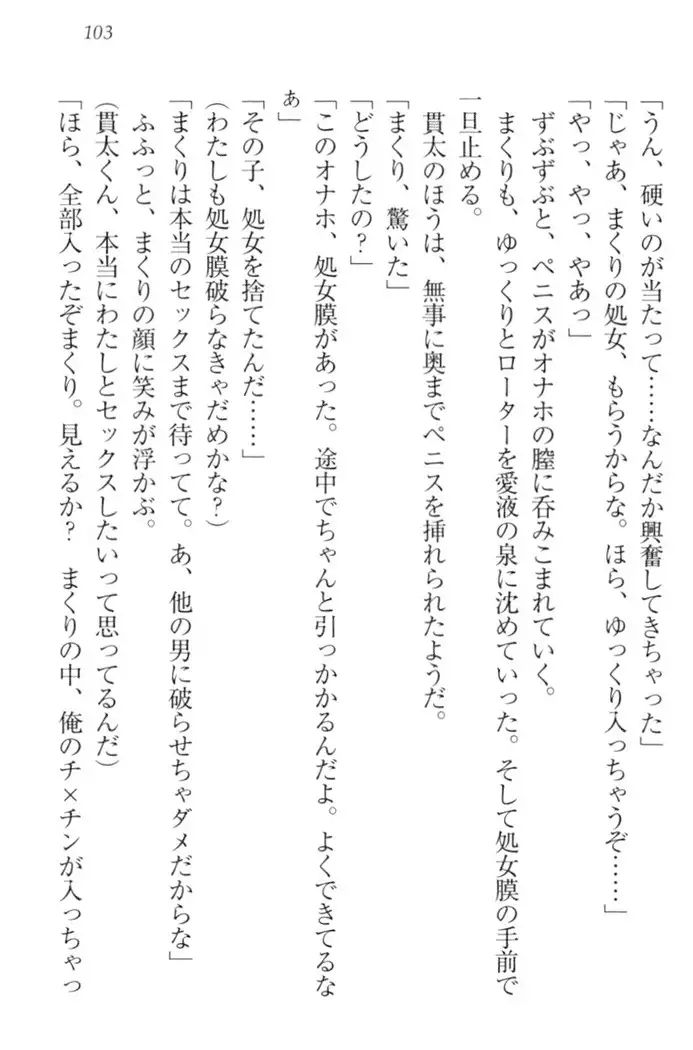 103
「うん、硬いのが当たって……なんだか興奮してきちゃった」
「じゃあ、まくりの処女、もらうからな。ほら、ゆっくり入っちゃうぞ……」
「やっ、やっ、やあっ」
ずぶずぶと、ペニスがオナホの膣に呑みこまれていく。
まくりも、ゆっくりとローターを愛液の泉に沈めていった。そして処女膜の手前で
一旦止める。
貫太のほうは、無事に奥までペニスを挿れられたようだ。
「まくり、驚いた」
「どうしたの？」
「このオナホ、処女膜があった。途中でちゃんと引っかかるんだよ。よくできてるな
ぁ」
「その子、処女を捨てたんだ……」
(わたしも処女膜破らなきゃだめかな？)
「まくりは本当のセックスまで待ってて。あ、他の男に破らせちゃダメだからな」
ふふっと、まくりの顔に笑みが浮かぶ。
(貫太くん、本当にわたしとセックスしたいって思ってるんだ)
「ほら、全部入ったぞまくり。見えるか？　まくりの中、俺のチ×チンが入っちゃっ